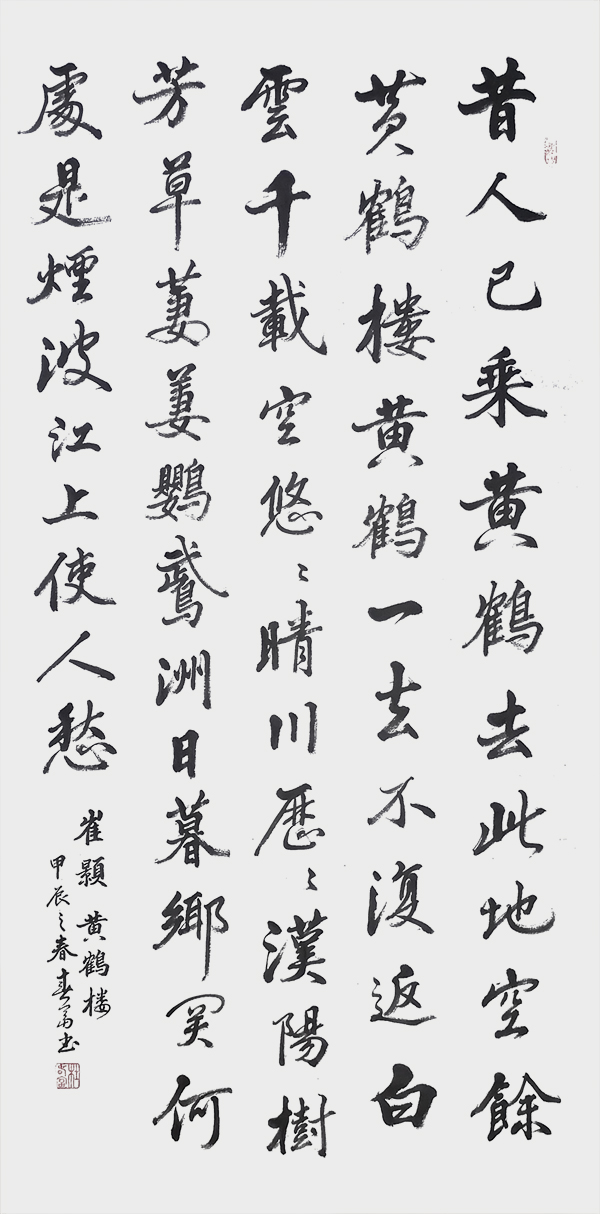 昔人已乘黄鶴去此地空餘
黄鶴楼黄鶴一去不復返白
雲千載空悠〻晴川歷〻漢陽樹
芳草萋萋鸚鵡洲日暮鄉関何
處是煙波江上使人愁
崔顥 黄鶴楼
甲辰之春 书